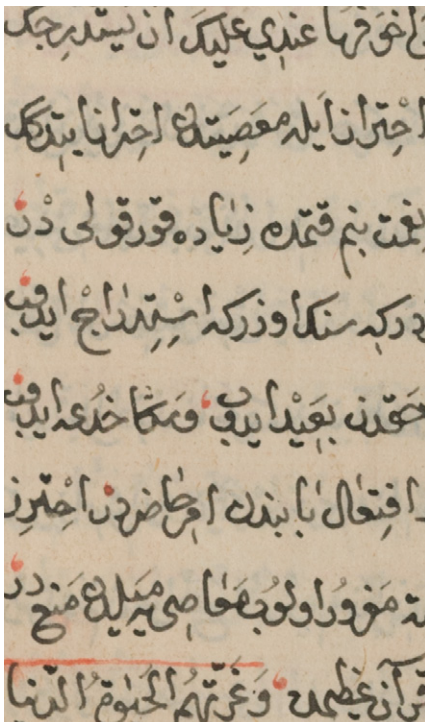 اخوفها عندي عليك ان يستدرجك
احترانا ايله معصيتده احترانا ايتدك
نعمت بنم قتمده زياده قورقولى در
در كه سنك اوزركه استدراج ايدوب
حقدن بعيد ايدوب ومكا خدعه ايدوب
افتعال بابندن امر حاضردر احترز
مغرور اولوب معاصى يه ميلدن منع در
قرآن عظيمده وغرتهم الحيوة الدنيا